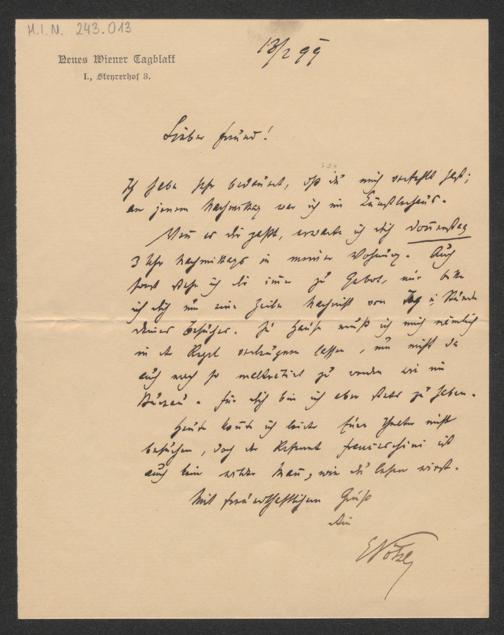 H.I.N. 243.013
Neues Wiener Tagblatt
I., Steyrerhof 3.
13/2 99
Lieber Freund!
Ich habe sehr bedauert, daß du mich verfehlt hast;
an jenem Nachmittag war ich im Künstlerhaus.
Wenn es dir paßt, erwarte ich dich Donnerstag
3 Uhr Nachmittags in meiner Wohnung. Auch
sonst stehe ich dir immer zu Gebot, nur bitte
ich dich um eine Zeile Nachricht von Tag & Stunde
deines Besuches. Zu Hause muß ich mich nämlich
in der Regel verläugnen lassen, um nicht da
auch noch so zu werden wie im
Bureau. Für dich bin ich aber stets zu haben.
Heute konnte ich leider Euer Theater nicht
besuchen, doch der Referent ist
auch kein Mann, wie du lesen wirst.
Mit freundschaftlichem Gruß
dein
EPötzl